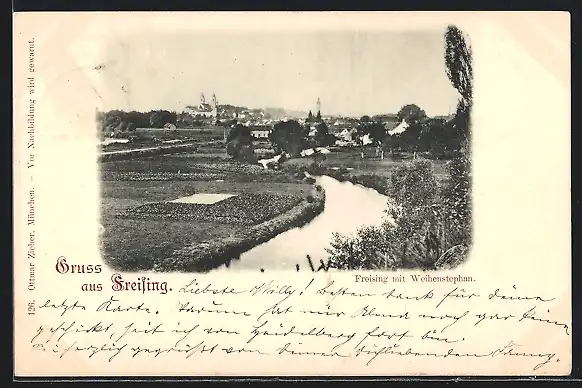 126. Ottmar Zieher, München. – Vor Nachbildung wird gewarnt.
Gruss
aus Freising.
Freising mit Weihenstephan.
Liebste Willy! Besten Dank für deine
letzte Karte. Warum hat mir noch gar keine
geschickt, seit ich von Heidelberg fort bin.
herzlich gegrüßt von deiner dich liebenden Fanny.